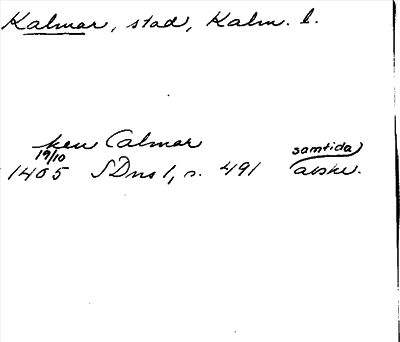 Kalmar, stad, Kalm. l.
Calmar
19/10 samtida
1405 SDns 1, s. 491 avskr.